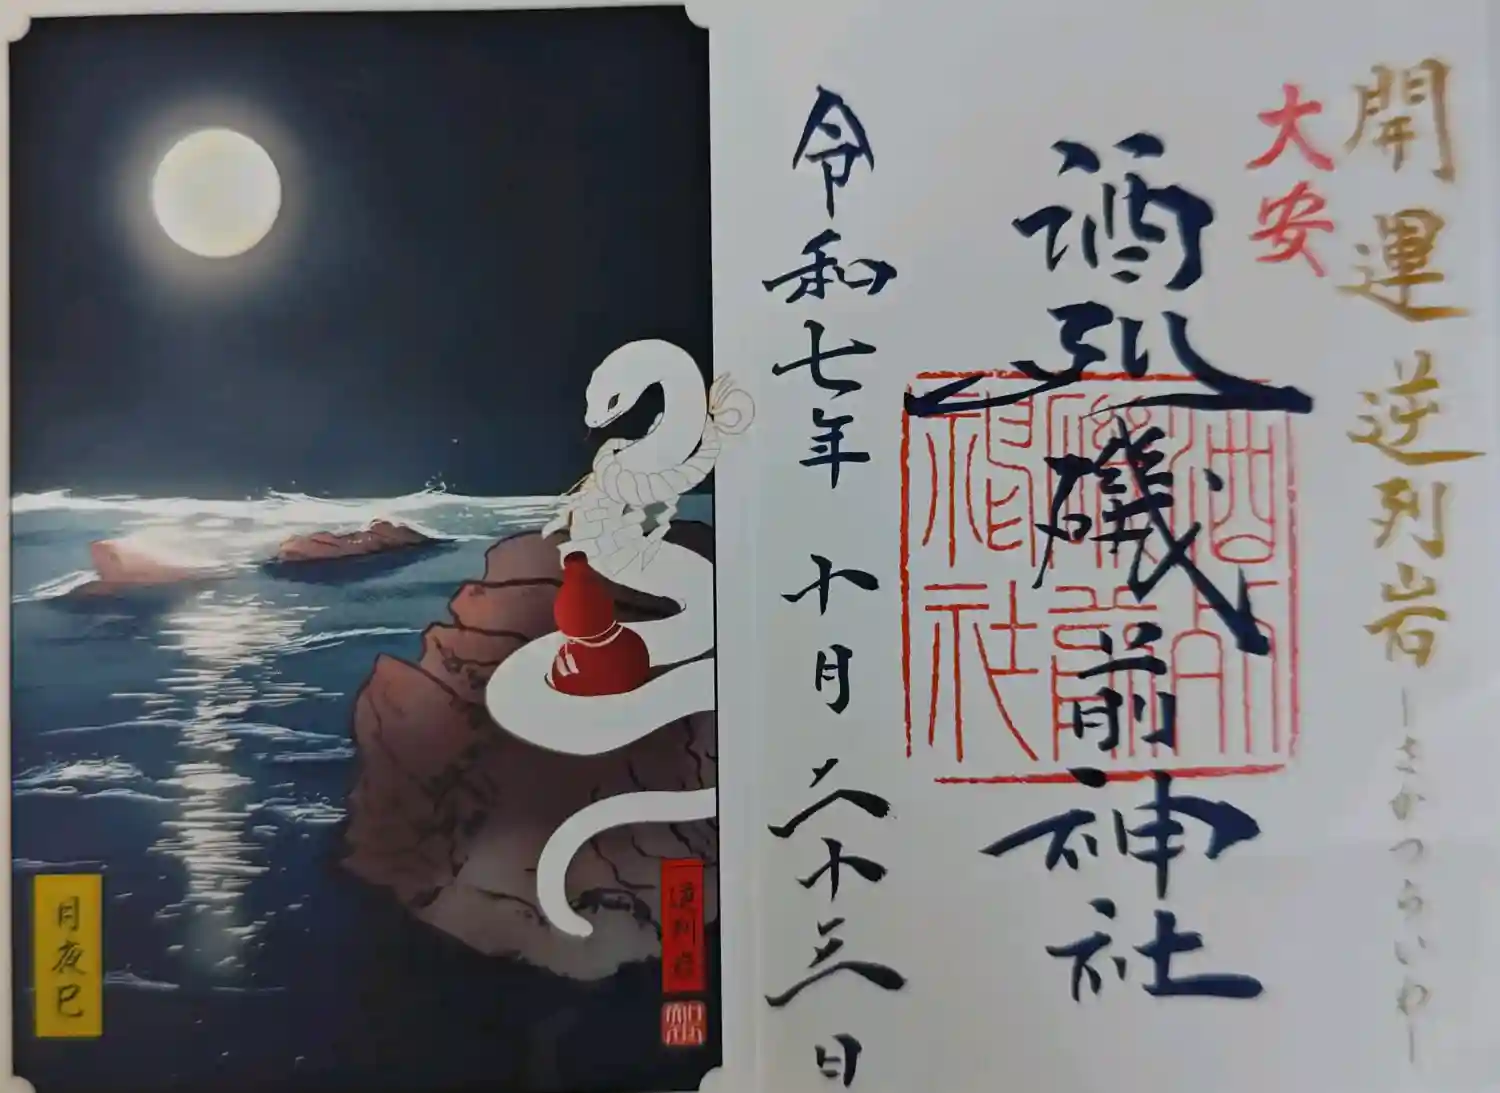 開運 逆列岩 ーさかつらいわー
大安
酒列磯前神社
酒列
磯前
神社
令和七年 十月二十三日
逆列岩
月夜巳